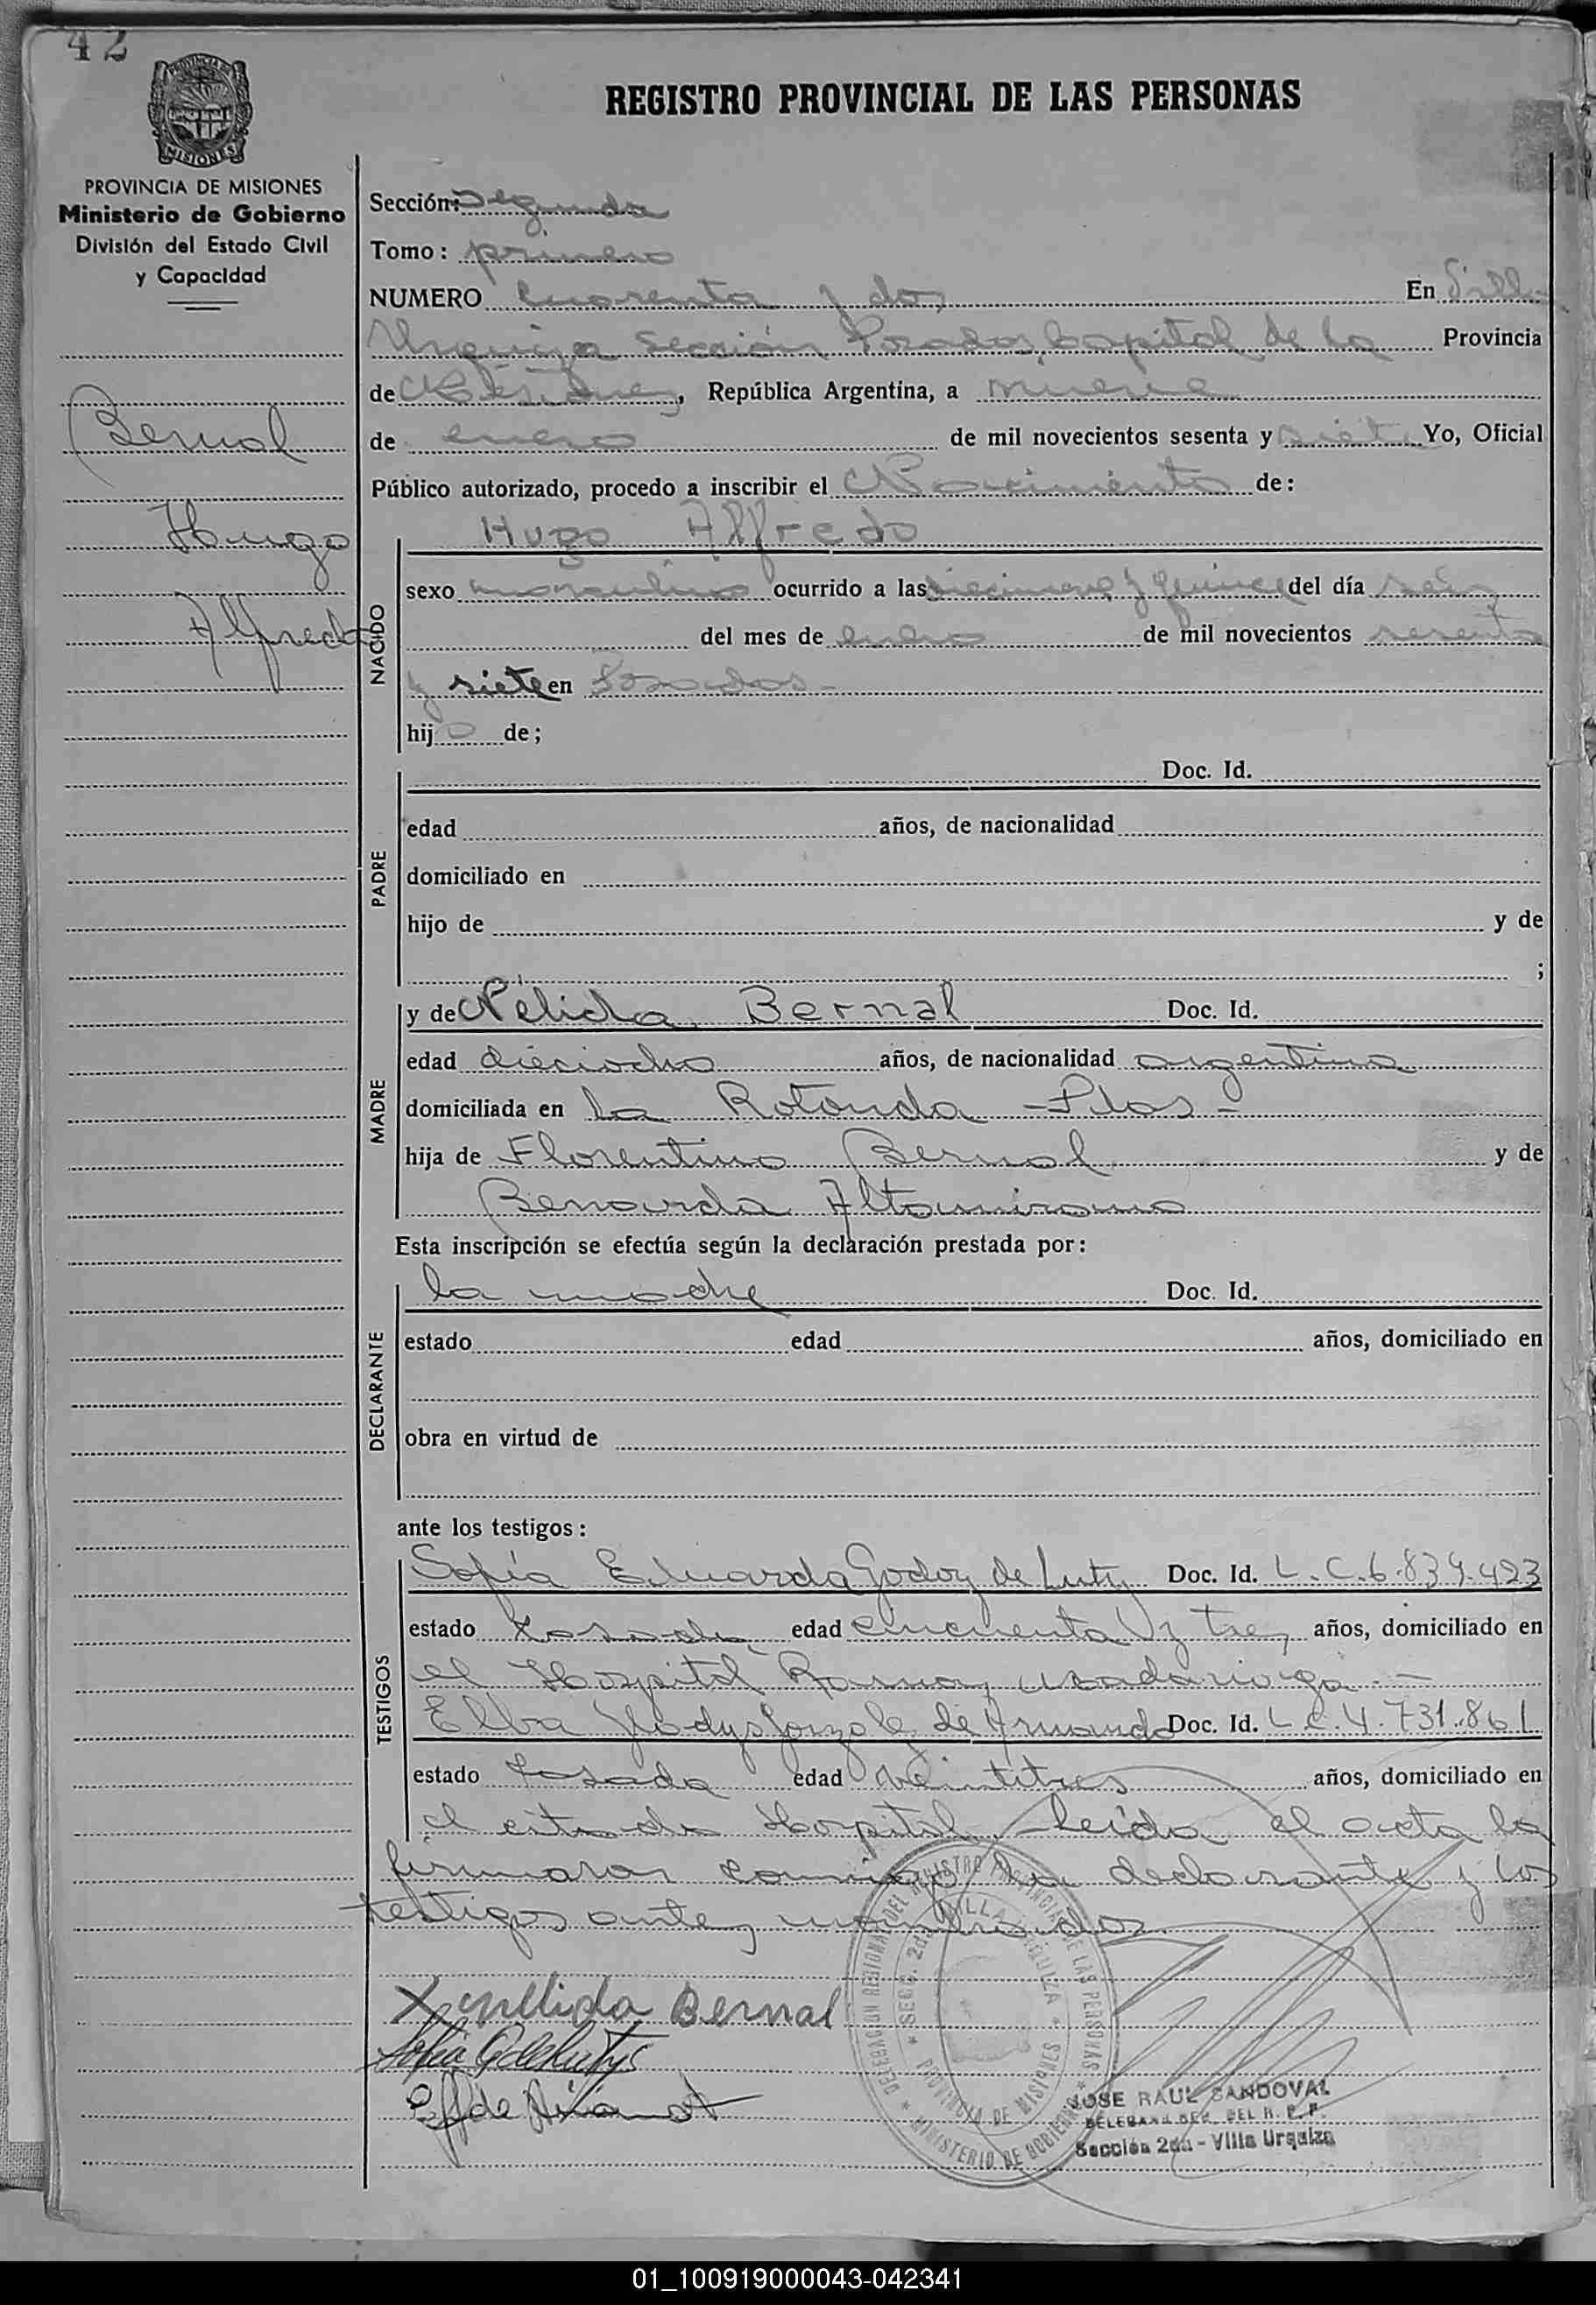 42
PROVINCIA DE MISIONES
Ministerio de Gobierno
División del Estado Civil
y Capacidad
REGISTRO PROVINCIAL DE LAS PERSONAS
Sección: Segunda
Tomo: primero
NUMERO cuarenta y dos En Villa
Urquiza Sección Posadas, Capital de la Provincia
de Misiones, República Argentina, a nueve
de enero de mil novecientos sesenta y siete Yo, Oficial
Público autorizado, procedo a inscribir el Nacimiento de:
Bernal
Hugo
Alfredo
NACIDO
Hugo Alfredo
sexo masculino ocurrido a las diecinueve y quince del día seis
del mes de enero de mil novecientos sesenta
y siete en Posadas-
hijo de;
PADRE
Doc. Id.
edad años, de nacionalidad
domiciliado en
hijo de y de
;
MADRE
y de Nélida Bernal Doc. Id.
edad dieciocho años, de nacionalidad argentina
domiciliada en La Rotonda -Pdas-
hija de Florentino Bernal y de
Benarda Altamirano
Esta inscripción se efectúa según la declaración prestada por:
DECLARANTE
la madre Doc. Id.
estado edad años, domiciliado en
obra en virtud de
ante los testigos:
TESTIGOS
Sofía Eduarda Godoy de Doc. Id. L.C.6.839.423
estado casada edad cincuenta y tres años, domiciliado en
el Hospital Ramon Madariaga.-
Elba Gladys Gonzalez de Doc. Id. L.C.4.731.861
estado casada edad veintitres años, domiciliado en
el citado Hospital.-Leída el acta la
firmaron conmigo la declarante y los
testigos antes
X Nelida Bernal
DELEGACION REGIONAL DEL REGISTRO PROVINCIAL DE LAS PERSONAS * MINISTERIO DE GOBIERNO *
* SECC. 2da VILLA URQUIZA * PROVINCIA DE MISIONES
JOSE RAUL SANDOVAL
DEL R. P. P.
Sección 2da - Villa Urquiza
01_100919000043-042341